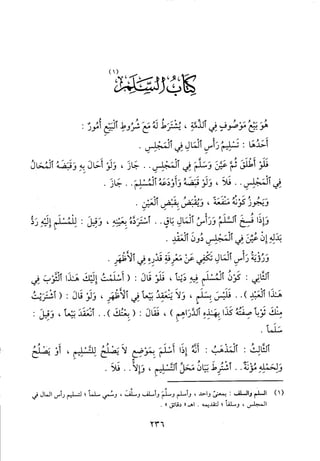 (١)
كتاب السلم
هو بيع موصوف في الذمة ، يشترط له مع شروط البيع أمور :
أحدها : تسليم رأس المال في المجلس .
فلو أطلق ثم عين وسلم في المجلس .. جاز ، ولو أحال به وقبضه المحال
في المجلس .. فلا ، ولو قبضه وأودعه المسلم .. جاز .
ويجوز كونه منفعة ، ويقبض بقبض العين .
وإذا فسخ السلم ورأس المال باق .. استرده بعينه ، وقيل : للمسلم إليه رد
بدله إن عين في المجلس دون العقد .
ورؤية رأس المال تكفي عن معرفة قدره في الأظهر .
الثاني : كون المسلم فيه دينا ، فلو قال : ( أسلمت إليك هذا الثوب في
هذا العبد ) .. فليس بسلم ، ولا ينعقد بيعا في الأظهر ، ولو قال : ( اشتريت
منك ثوبا صفته كذا بهذه الدراهم ) ، فقال : ( بعتك ) .. انعقد بيعا ، وقيل :
سلما .
الثالث : المذهب : أنه إذا أسلم بموضع لا يصلح للتسليم ، أو يصلح
ولحمله مؤنة .. اشترط بيان محل التسليم ، وإلا .. فلا .
(١) السلم والسلف : بمعنى واحد ، وسلم وأسلم وسلف وأسلف ، وسمي سلما ؛ لتسليم رأس المال في
المجلس ، وسلفا ؛ لتقديمه . اهـ « دقائق » .
٢٣٦